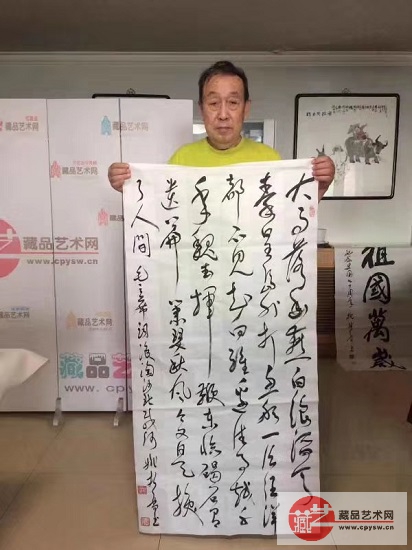 藏品艺术网
藏品艺术网
藏品艺术网
www.cpysw.cn
藏品艺术网
www.cpysw.cn
大雨落幽燕白浪滔天
秦皇岛外打鱼船一片汪洋
都不见知向谁边往事越千
年魏武挥鞭东临碣石有
遗篇萧瑟秋风今又是换
了人间 毛主席词浪淘沙北戴河
祖國萬歲
藏艺
藏品艺术网
www.cpysw.cn